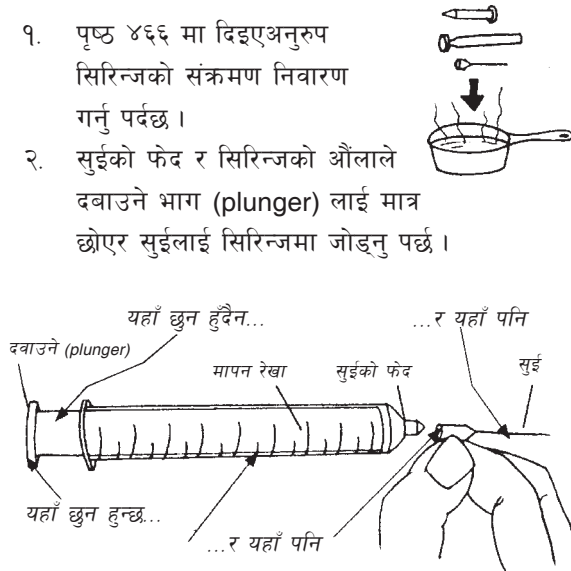 १. पृष्ठ ४६६ मा दिइएअनुरुप
सिरिन्जको संक्रमण निवारण
गर्नु पर्दछ ।
२. सुईको फेद र सिरिन्जको औंलाले
दबाउने भाग (plunger) लाई मात्र
छोएर सुईलाई सिरिन्जमा जोड्नु पर्छ ।
यहाँ छुन हुँदैन...
...र यहाँ पनि
दवाउने (plunger)
मापन रेखा
सुईको फेद
सुई
यहाँ छुन हुन्छ...
...र यहाँ पनि